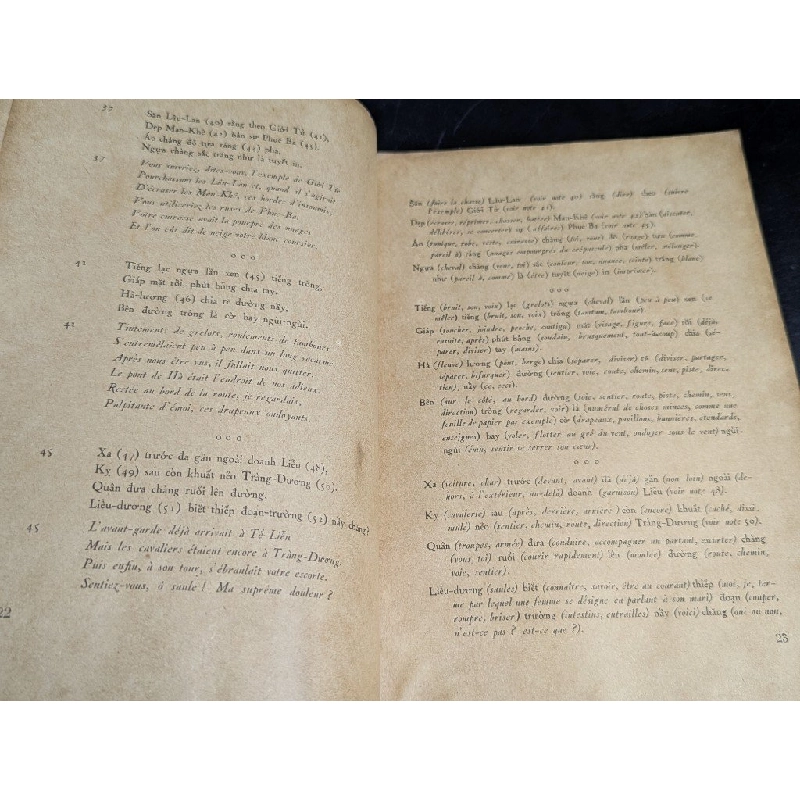 37
Săn Lâu-Lan (40) rằng theo Giới Tử (41),
Dẹp Man-Khê (42) bàn sự Phục Ba (43).
Áo chàng đỏ tựa ráng (44) pha,
Ngựa chàng sắc trắng như là tuyết in.
37
Vous suivriez, dites-vous, l'exemple de Giới Tử
Pourchassant les Lâu-Lan et, quand il s'agirait
D'écraser les Man-Khê, ces hordes d'insoumis,
Vous utiliseriez les ruses de Phục-Ba.
Votre casaque avait la pourpre des nuages
Et l'on eût dit de neige votre blanc coursier.
o o o
41
Tiếng lạc ngựa lẫn son (45) tiếng trống,
Giáp mặt rồi phút bỗng chia tay.
Hà-lương (46) chia rẽ đường này,
Bên đường trông lá cờ bay ngùi-ngùi.
41
Tintements de grelots, roulements de tambours
S'entremêlaient peu à peu dans un long
Après nous être vus, il fallait nous quitter.
Le pont de Hà était l'endroit de nos adieux.
Restée au bord de la route, je regardais,
Palpitante d'émoi, ces drapeaux ondoyants.
o o o
45
Xa (47) trước đã gần ngoài doanh Liễu (48),
Kỵ (49) sau còn khuất nẻo Tràng-Dương (50).
Quân đưa chàng ruổi lên đường.
Liễu-dương (51) biết thiếp đoạn-trường (52) này chăng?
45
L'avant-garde déjà arrivait à Tế-Liễu
Mais les cavaliers étaient encore à Tràng-Dương.
Puis enfin, à son tour, s'ébranlait votre escorte.
Sentiez-vous, ô saule ! Ma suprême douleur ?
22
Săn (faire la chasse) Lâu-Lan (voir note 40) rằng (dire) theo (suivre
l'exemple) Giới Tử (voir note 41).
Dẹp (écraser, réprimer, chasser, battre) Man-Khê (voir note 42) bàn (discuter,
délibérer, se concerter) sự (affaires) Phục Ba (voir note 43).
Áo (tunique, robe, veste, casaque) chàng (toi, vous) đỏ (rouge) tựa (comme,
pareil à) ráng (nuages empourprés du crépuscule) pha (mêler, mélanger).
Ngựa (cheval) chàng (vous, toi) sắc (couleur, ton, nuance, teinte) trắng (blanc)
như (pareil à, comme) là (être) tuyết (neige) in (imprimer).
o o o
Tiếng (bruit, son, voix) lạc (grelots) ngựa (cheval) lẫn (peu à peu) son (se
mêler) tiếng (bruit, son, voix) trống (tamtam, tambour)
Giáp (toucher, joindre, proche, contigu) mặt (visage, figure, face) rồi (déjà
ensuite, après) phút bỗng (soudain, brusquement, tout-à-coup) chia (sé-
parer, diviser) tay (mains).
Hà (fleuve) lương (pont, berge) chia (séparer, diviser) rẽ (diviser, partager,
séparer, bifurquer) đường (sentier, voie, route, chemin, sens, piste, direc-
tion), này (ce, ceci).
Bên (sur le côté, au bord) đường (voie, sentier, route, piste, chemin, sens,
direction) trông (regarder, voir) lá (numéral de choses minces, comme une
feuille de papier par exemple) cờ (drapeaux, pavillons, bannières, étendards,
enseignes) bay (voler, flotter au gré du vent, onduler sous le vent) ngùi-
ngùi (ému, sentir se serrer son cœur).
o o o
Xa (voiture, char) trước (devant, avant) đã (déjà) gần (non loin) ngoài (de-
hors, à l'extérieur, au-delà) doanh (garnison) Liễu (voir note 48).
Kỵ (cavalerie) sau (après, derrière, arrière) còn (encore) khuất (caché, dissi-
mulé) nẻo (sentier, chemin, route, direction) Tràng-Dương (voir note 50).
Quân (troupes, armée) đưa (conduire, accompagner un partant, escorter) chàng
(vous, toi) ruổi (courir rapidement) lên (monter) đường (route, chemin,
voie, sentier).
Liễu-dương (saules) biệt (connaître, savoir, être au courant) thiếp (moi, je, ter-
me par lequel une femme se désigne en parlant à son mari) đoạn (couper,
rompre, briser) trường (intestins, entrailles) nầy (voici) chăng (oui ou non,
n'est-ce pas ? est-ce que ?).
23